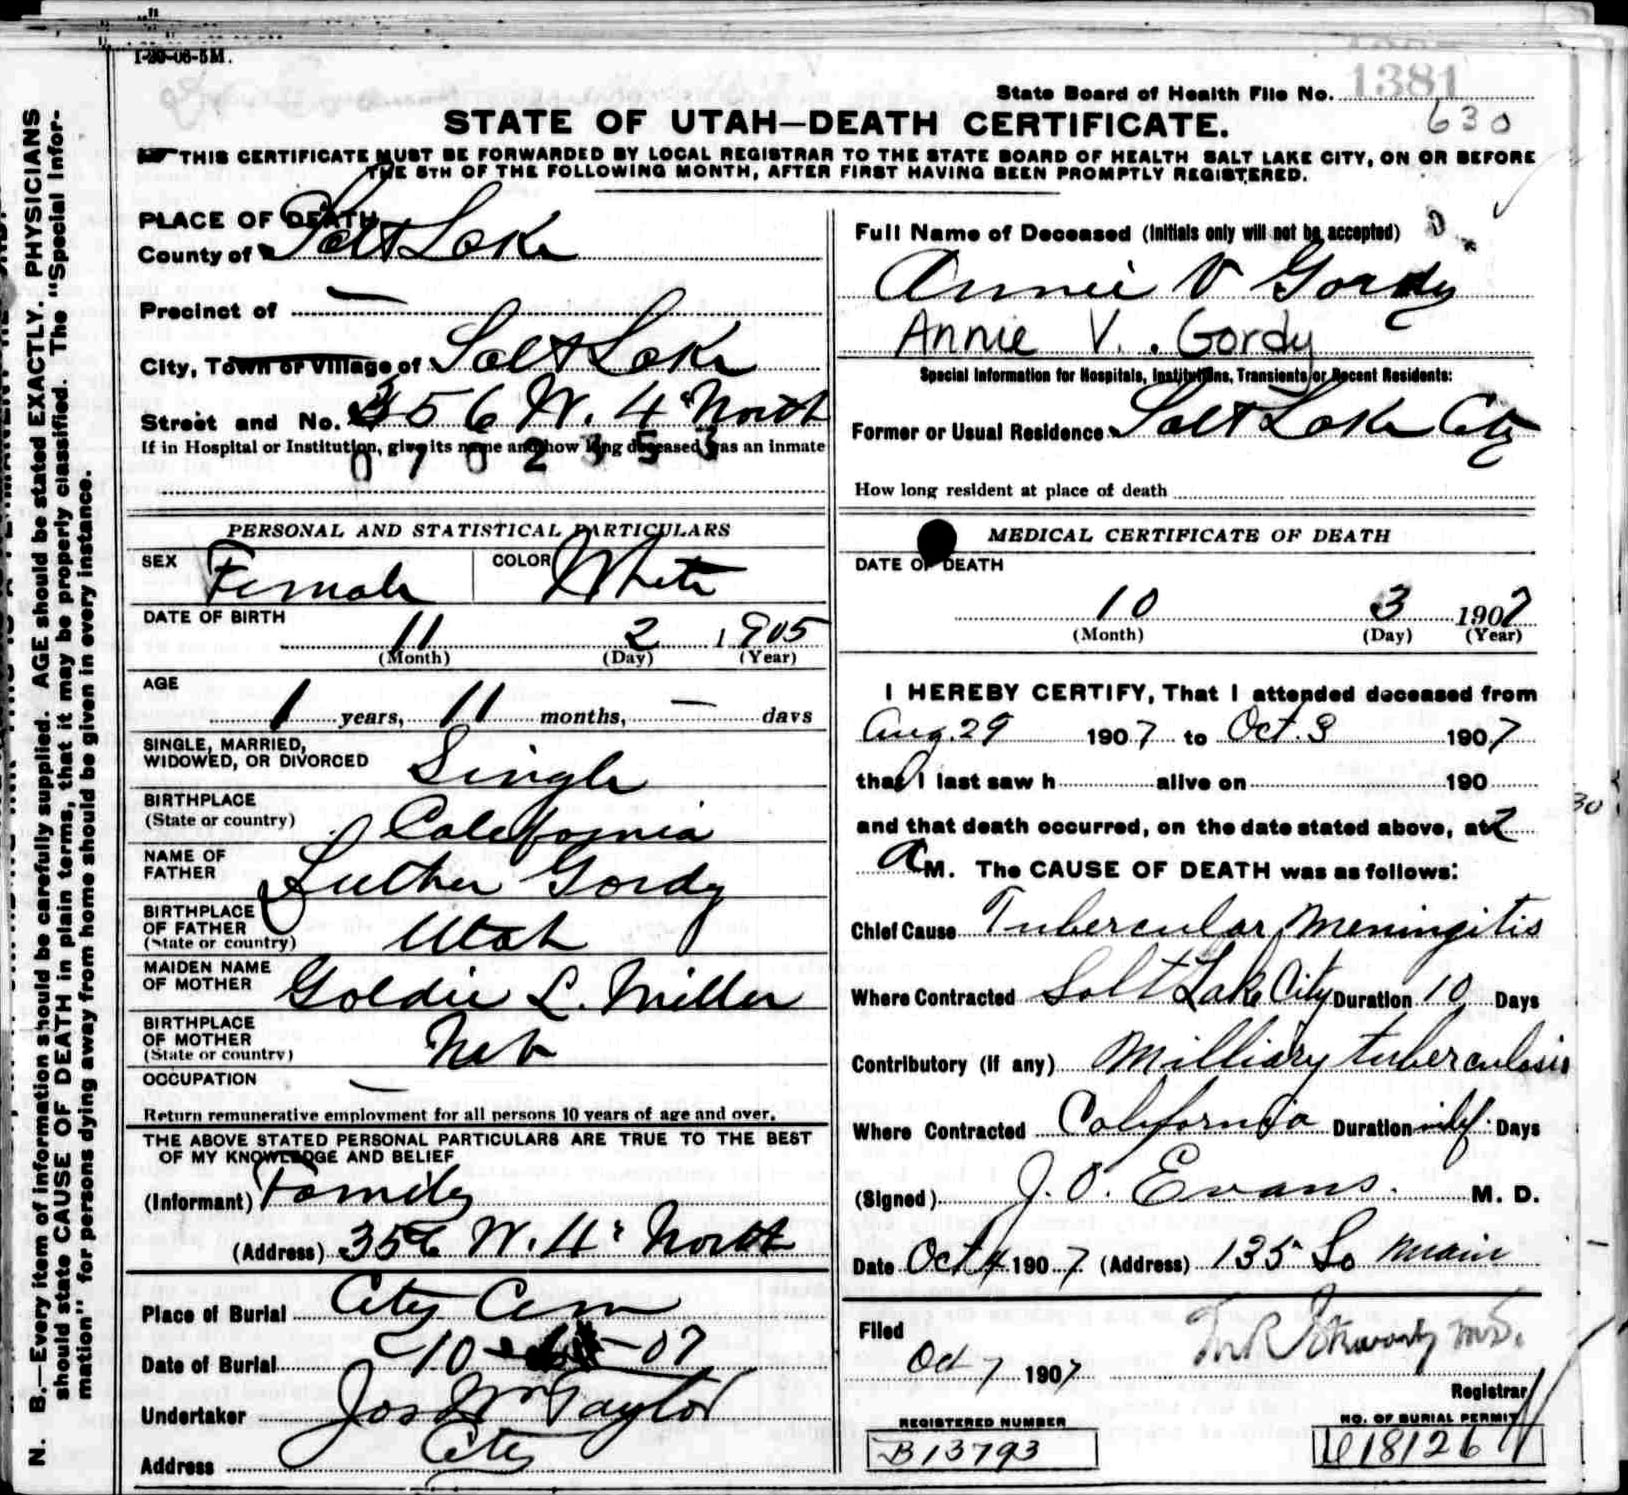 1-20-06-5M.
State Board of Health File No. 1381
630
STATE OF UTAH—DEATH CERTIFICATE.
THIS CERTIFICATE MUST BE FORWARDED BY LOCAL REGISTRAR TO THE STATE BOARD OF HEALTH SALT LAKE CITY, ON OR BEFORE
THE 5TH OF THE FOLLOWING MONTH, AFTER FIRST HAVING BEEN PROMPTLY REGISTERED.
N. B.—Every item of information should be carefully supplied. AGE should be stated EXACTLY. PHYSICIANS
should state CAUSE OF DEATH in plain terms, that it may be properly classified. The "Special Infor-
mation" for persons dying away from home should be given in every instance.
PLACE OF DEATH
County of Salt Lake
Precinct of —
City, Town or Village of Salt Lake
Street and No. 356 W. 4" North
If in Hospital or Institution, give its name and how long deceased was an inmate
0 7 0 2 3 5 3
PERSONAL AND STATISTICAL PARTICULARS
SEX Female COLOR White
DATE OF BIRTH
11 2 1905
(Month) (Day) (Year)
AGE
1 years, 11 months, — days
SINGLE, MARRIED,
WIDOWED, OR DIVORCED Single
BIRTHPLACE
(State or country) California
NAME OF
FATHER Luther Gordy
BIRTHPLACE
OF FATHER
(State or country) Utah
MAIDEN NAME
OF MOTHER Goldie L. Miller
BIRTHPLACE
OF MOTHER
(State or country) Neb
OCCUPATION —
Return remunerative employment for all persons 10 years of age and over.
THE ABOVE STATED PERSONAL PARTICULARS ARE TRUE TO THE BEST
OF MY KNOWLEDGE AND BELIEF
(Informant) Family
(Address) 356 W. 4" North
Place of Burial City Cem
Date of Burial 10 - -07
Undertaker Jos Wm Taylor
Address City
Full Name of Deceased (Initials only will not be accepted)
Annie V Gordy
Annie V. Gordy
Special Information for Hospitals, Institutions, Transients or Recent Residents:
Former or Usual Residence Salt Lake City
How long resident at place of death
MEDICAL CERTIFICATE OF DEATH
DATE OF DEATH
10 3 1907
(Month) (Day) (Year)
I HEREBY CERTIFY, That I attended deceased from
Aug. 29 1907 to Oct. 3 1907
that I last saw h alive on 190
30
and that death occurred, on the date stated above, at 2
a M. The CAUSE OF DEATH was as follows:
Chief Cause Tubercular Meningitis
Where Contracted Salt Lake City Duration 10 Days
Contributory (if any) Milliary tuberculosis
Where Contracted California Duration indf. Days
(Signed) J. O. Evans. M. D.
Date Oct 4 1907 (Address) 135 So Main
Filed
Oct 7 1907
Registrar
REGISTERED NUMBER
B13793
NO. OF BURIAL PERMIT
18126